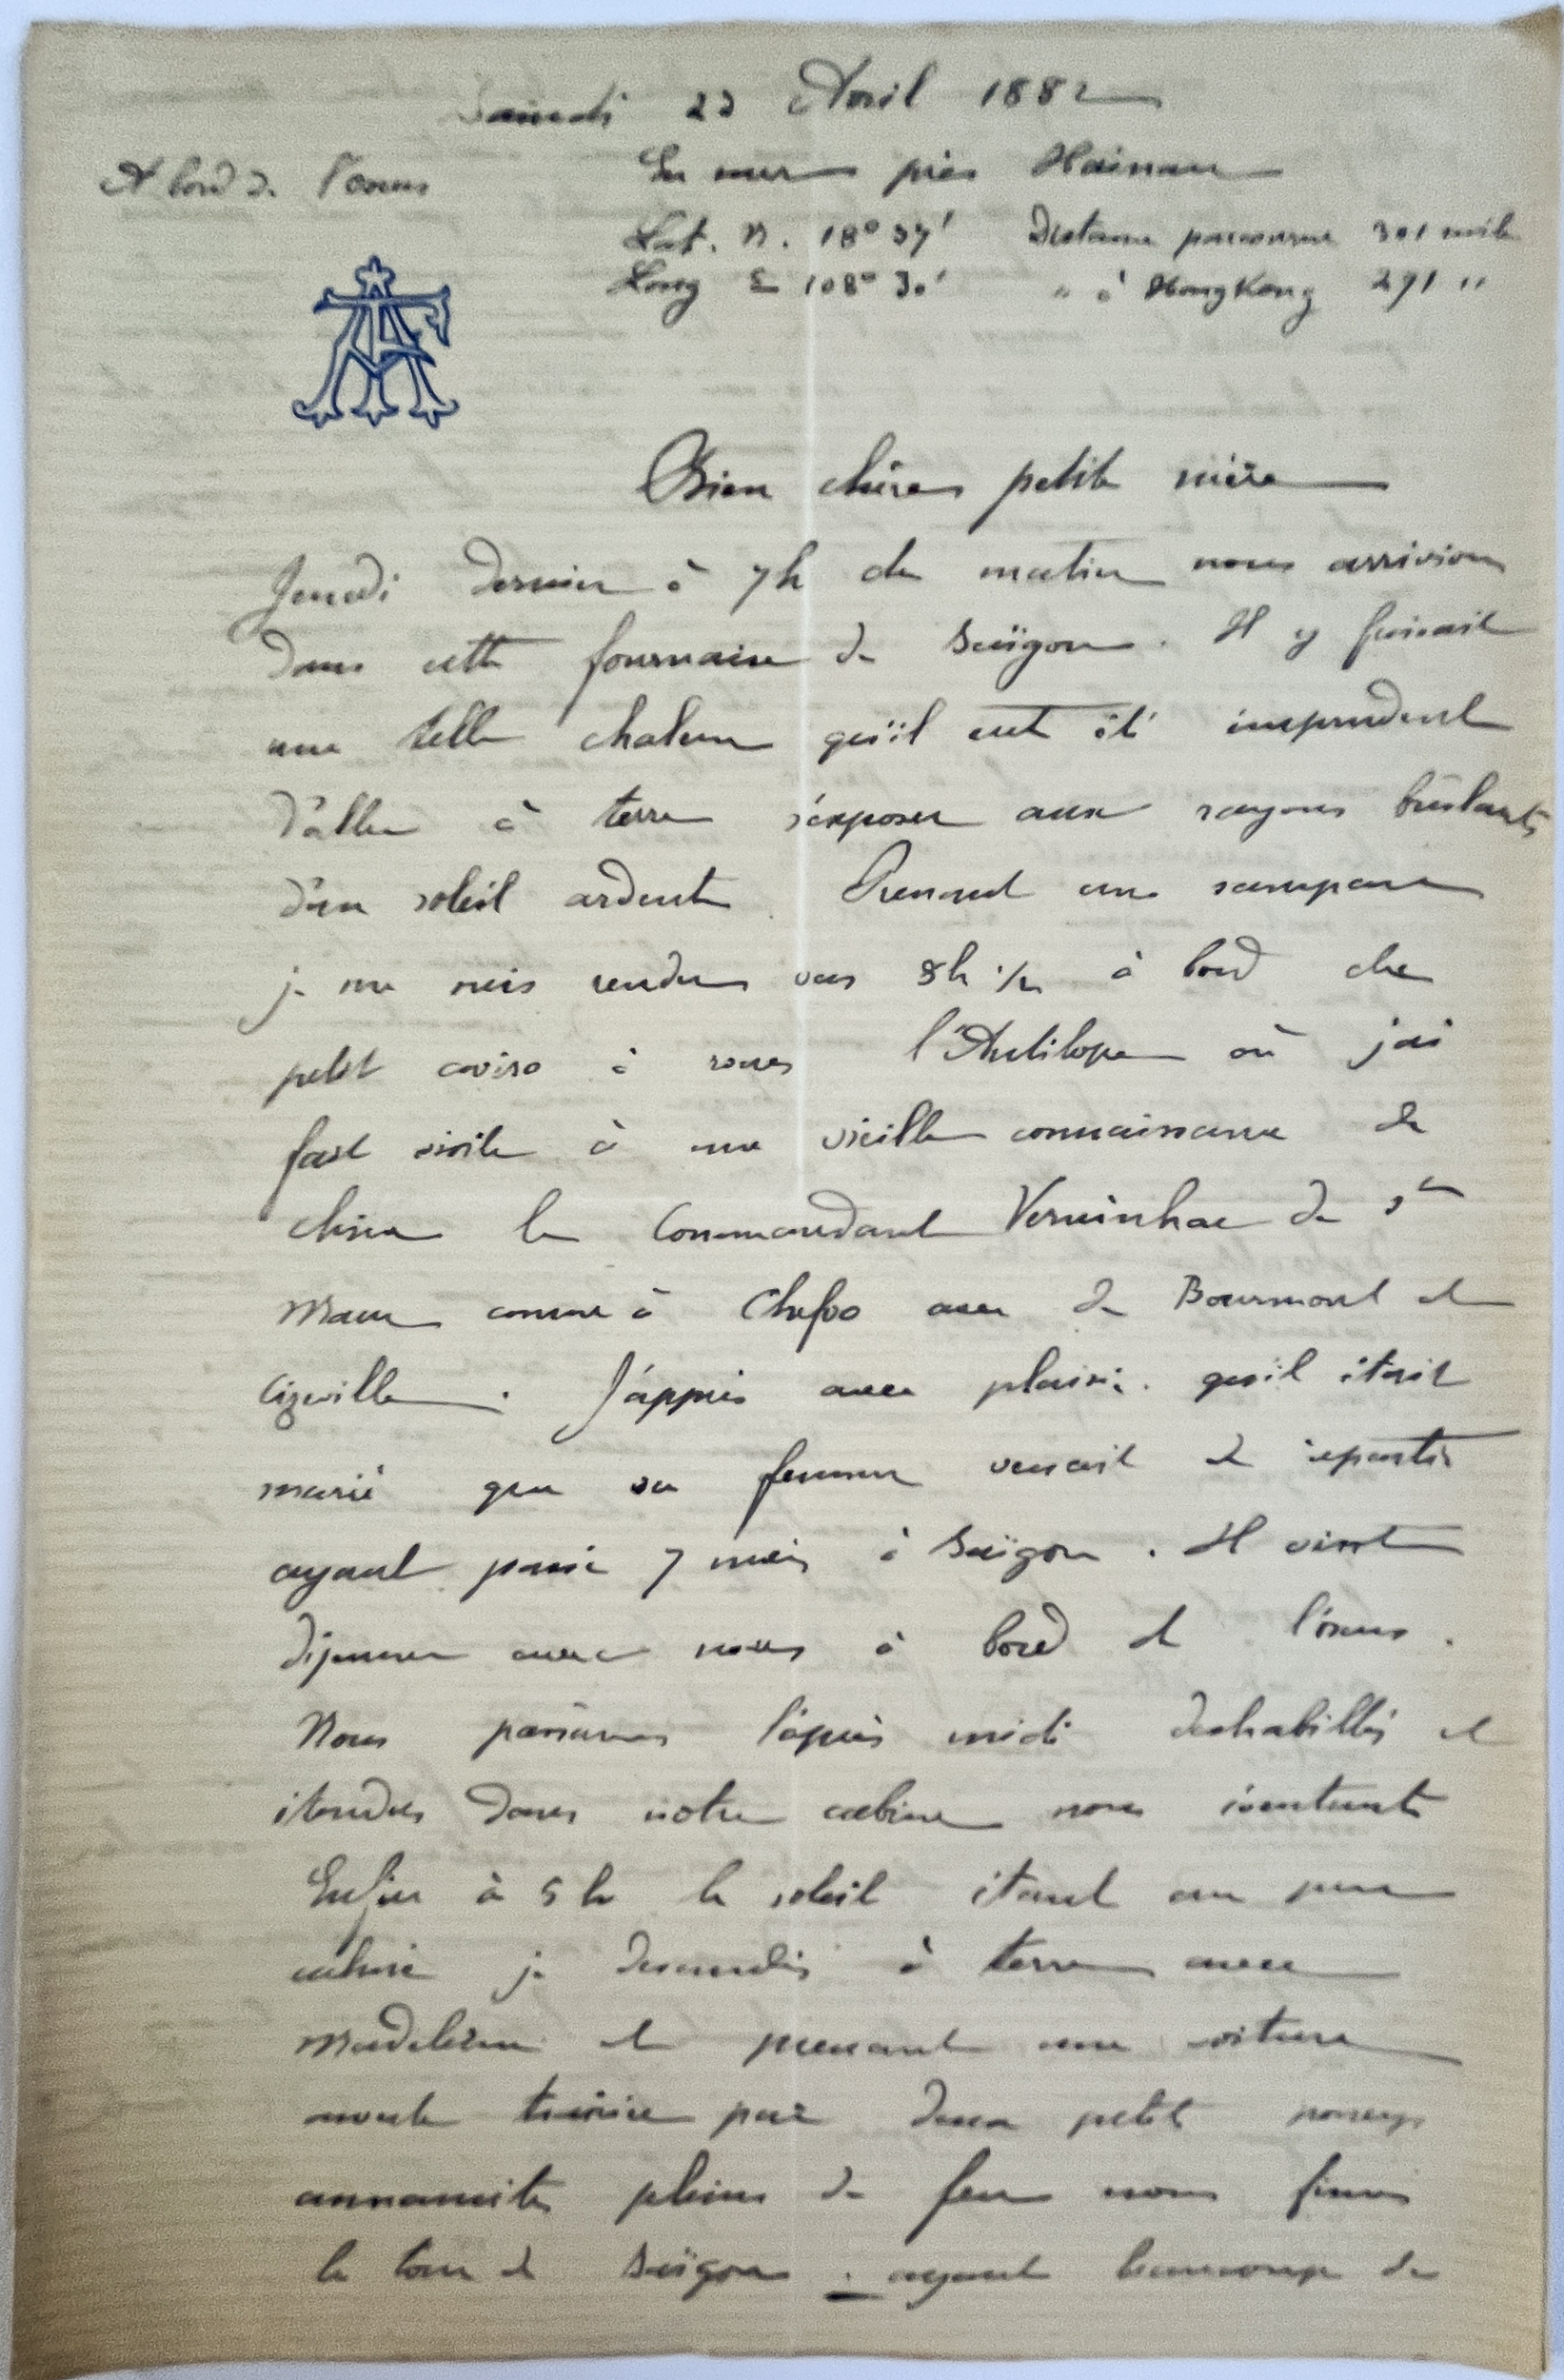 Samedi 22 Avril 1882
A bord de l'Oxus
En mer près Hainan
Lat. N. 18° 37' Distance parcourue 301 mill
Long E 108° 30' " à HongKong 291 "
AF
Bien chère petite mère
Jeudi dernier à 7h du matin nous arrivions
dans cette fournaise de Saïgon. Il y faisait
une telle chaleur qu'il eut été imprudent
d'aller à terre s'exposer aux rayons brûlants
d'un soleil ardent. Prenant un sampan
je me suis rendu vers 8h 1/2 à bord du
petit aviso à roues l'Antilope où j'ai
fait visite à une vieille connaissance de
chine le Commandant Verninhac de St
Maur connu à Chefoo avec de Bourmont et
. J'appris avec plaisir qu'il était
marié que sa femme venait de repartir
ayant passé 7 mois à Saïgon. Il vint
déjeuner avec nous à bord de l'Oxus.
Nous passâmes l'après midi deshabillés et
étendus dans notre cabine nous éventant
Enfin à 5h le soleil étant un peu
calmé je descendis à terre avec
Madeleine et prenant une voiture
trainée par deux petit poneys
annamites pleins de feu nous fimes
le tour de Saïgon. ayant beaucoup de